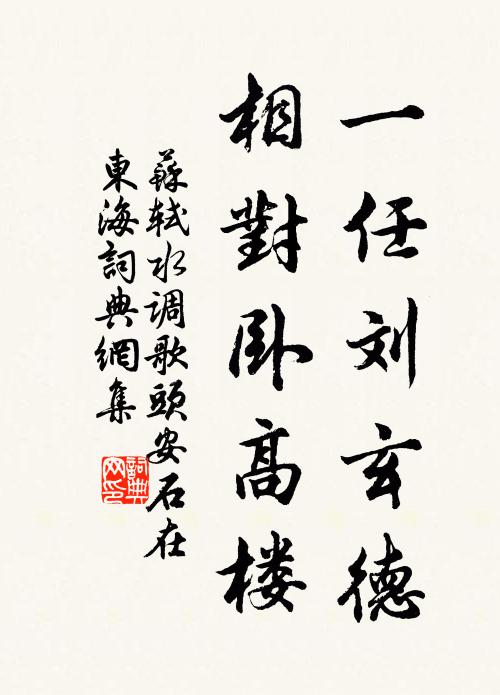 一任刘玄德
相對卧高楼
蘇軾水调歌頭安石在
東海詞典網集
詞典网印